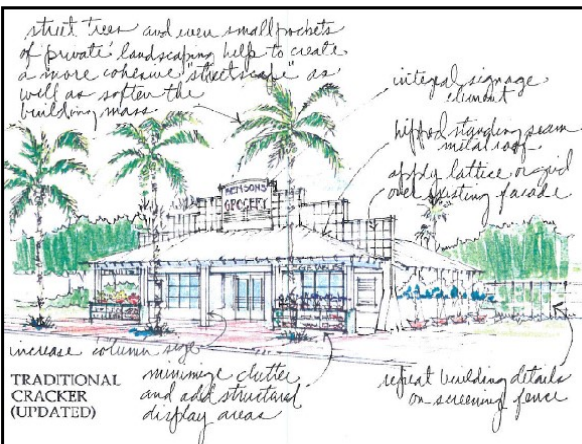 street trees and even small pockets
of 'private' landscaping help to create
a more cohesive "streetscape" as
well as soften the
building mass
integral signage
element
hipped standing seam
metal roof
apply lattice or grid
over existing facade
GROCERY
increase column size
minimize clutter
and add structured
display areas
repeat building details
on screening fence
TRADITIONAL
CRACKER
(UPDATED)